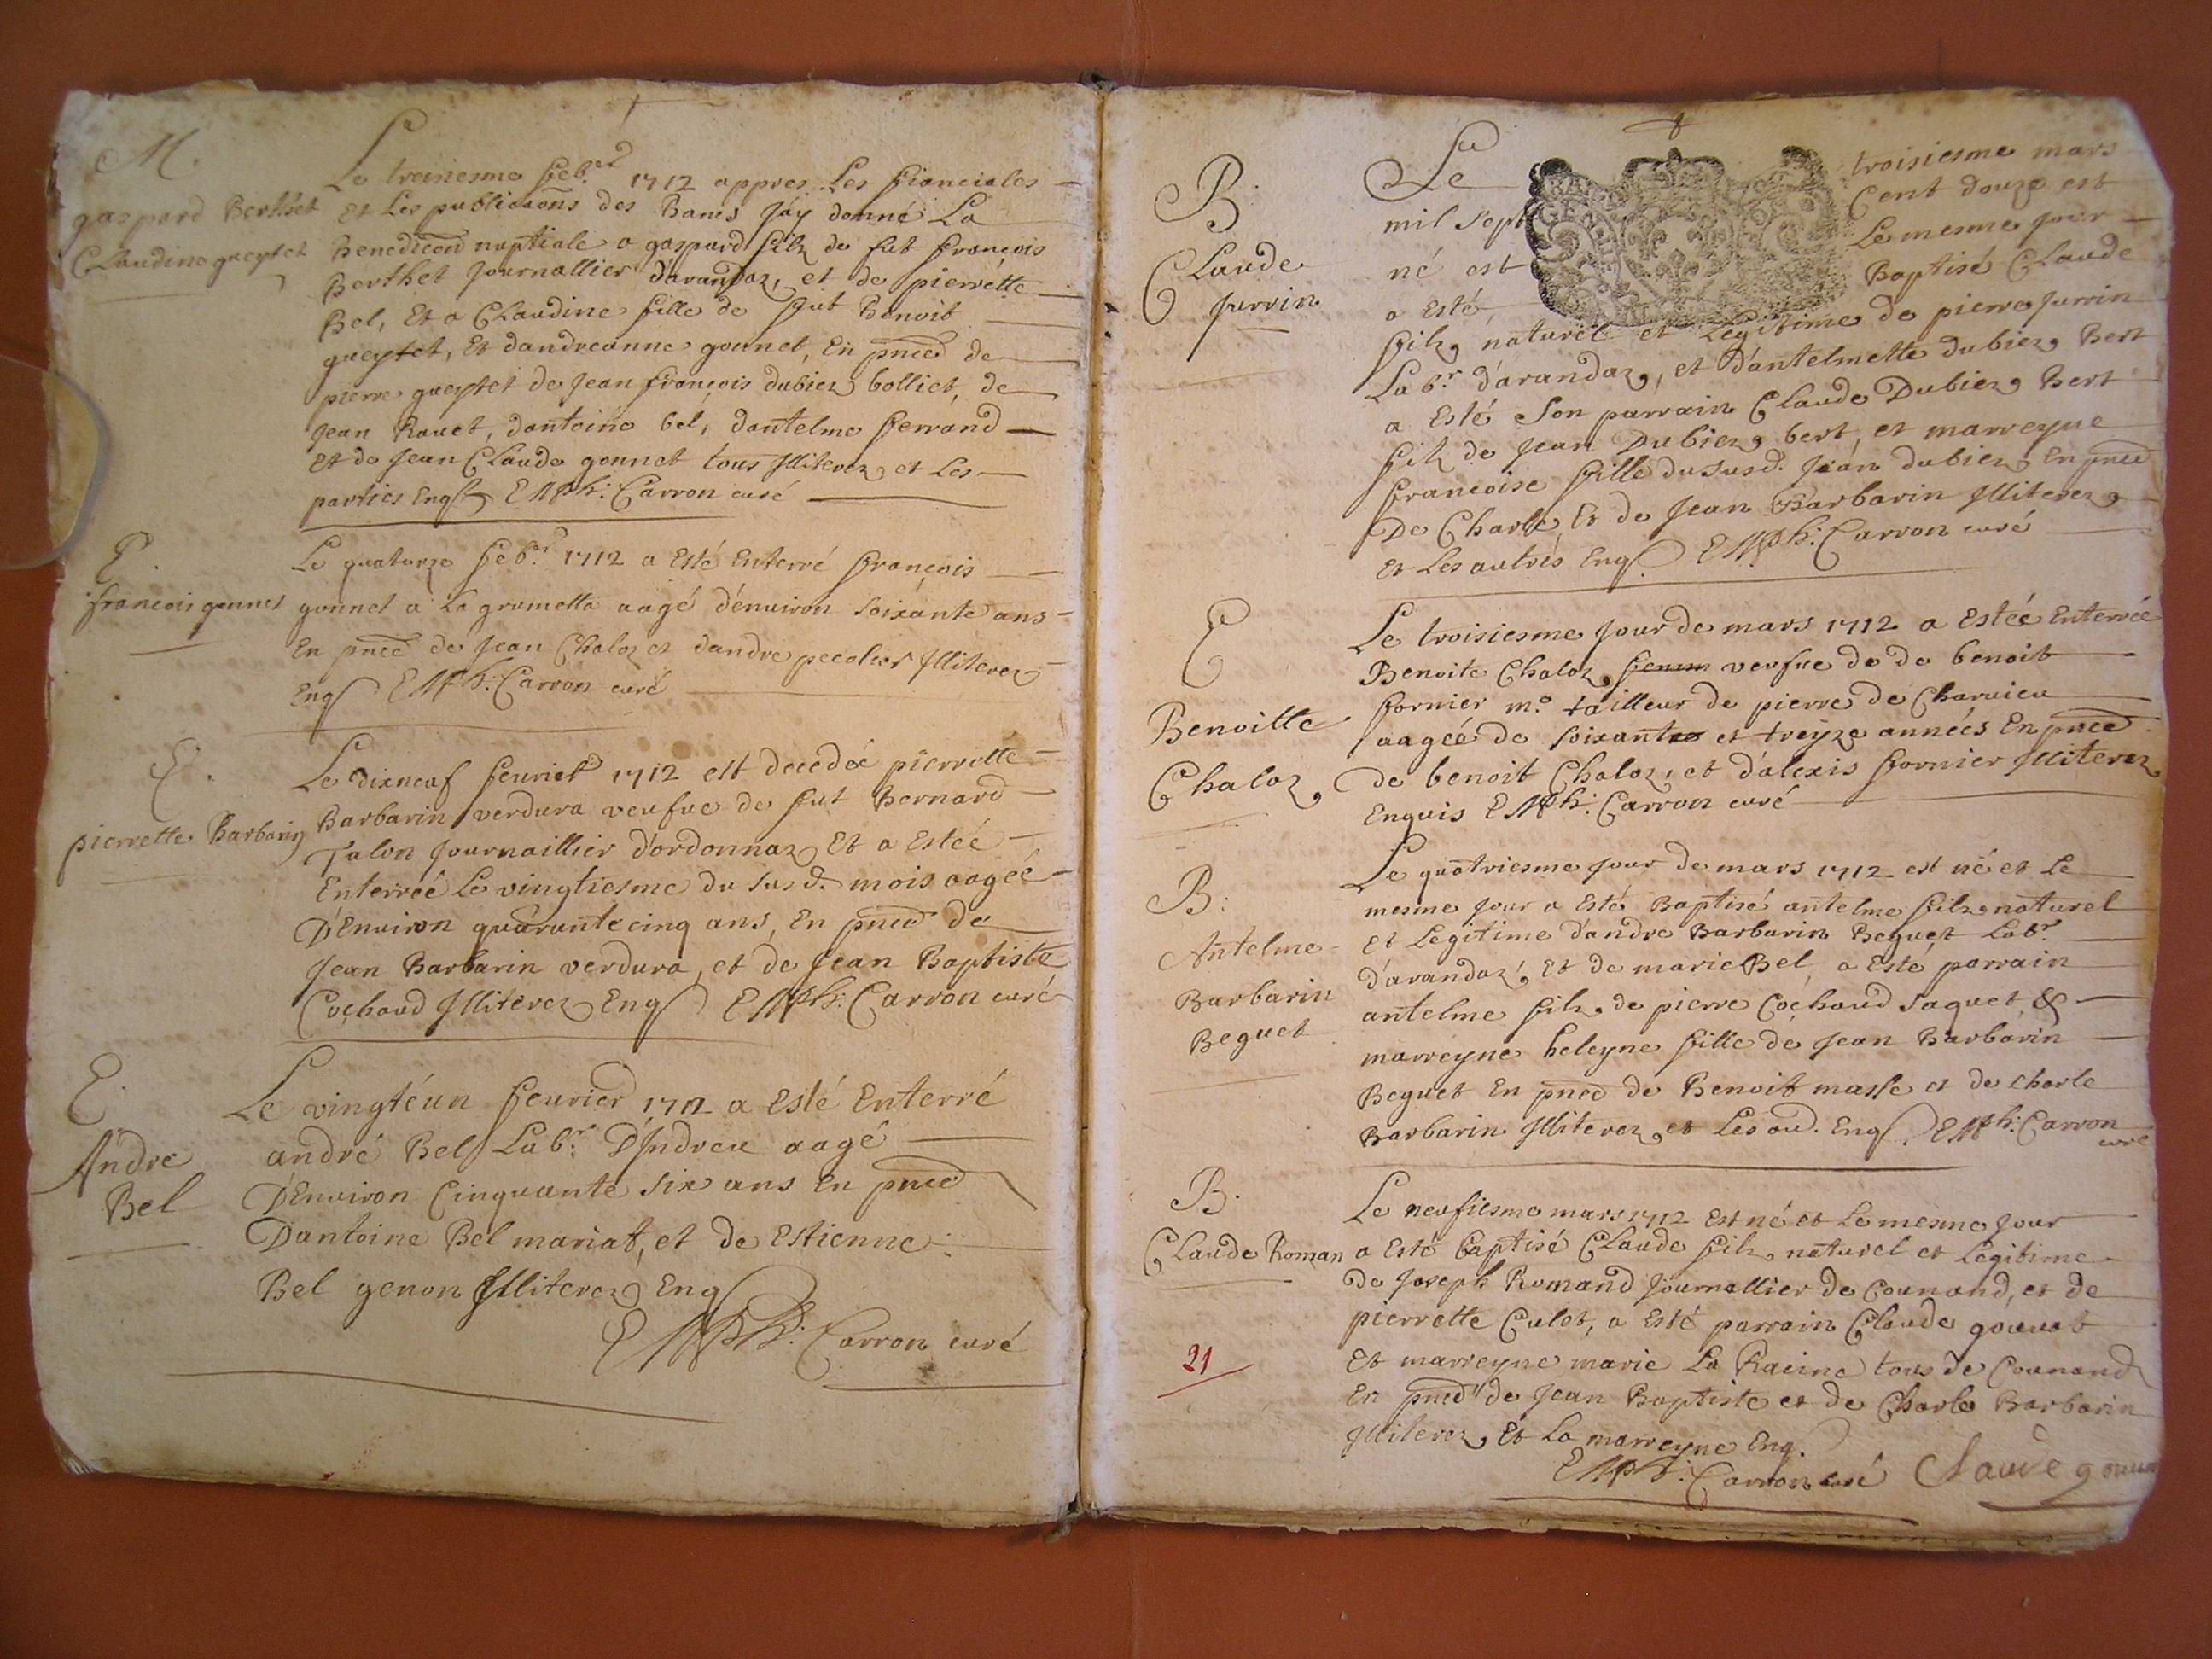 M.
gaspard Berthet
Claudine gueytet
Le treiziesme feb.er 1712 appres Les fianciales
et Les publicaōns des Bancs J'ay donné La
Benediceōn nuptiale a gaspard filz de fut françois
Berthet Journallier d'arandaz, et de pierrette
Bel, Et a Claudine fille de fut Benoit
gueytet, Et dandreanne gonnet, En pnce de
pierre gueytet de Jean françois dubiez bolliet, de
Jean Ravet, dantoine bel, dantelme ferrand
et de Jean Claude gonnet tous Illiterez et Les
parties Enq. Carron curé
E.
francois gonnet
Le quatorze feb.er 1712 a Esté Enterré françois
gonnet a La grumette aagé d'environ soixante ans
En pnce de Jean Chaloz et dandre pecolier Illiterez
Enq. Carron curé
E.
pierrette Barbarin
Le dixneuf feurier 1712 est decedée pierrette
Barbarin verdura veufue de fut Bernard
Talon Journaillier d'ordonnaz Et a Estéé
Enterréé Le vingtiesme du susd. mois aagéé
D'Environ quarante cinq ans, En pnce de
Jean Barbarin verdura, et de Jean Baptiste
Cochaud Illiterez Enq. Carron curé
E.
Andre
Bel
Le vingtéun feurier 1712 a Esté Enterré
andré Bel Lab.r D'Indrieu aagé
D'Environ Cinquante six ans En pnce
Dantoine Bel mariat, et de Estienne
Bel genon Illiterez Enq.
Carron curé
B.
Claude
Jurrin
Le troisiesme mars
mil sept Cent douze est
né est Le mesme jour
a Esté Baptisé Claude
filz naturel et Legitime de pierre Jurrin
Lab.r d'arandaz, et d'antelmette dubiez Bert
a Esté son parrain Claude Dubiez Bert
filz de Jean Dubiez bert, et marreyne
francoise fille du susd. Jean dubiez En pnce
De Charle, Et de Jean Barbarin Illiterez
et Les autres Enq. Carron curé
E
Benoitte
Chaloz
Le troisiesme Jour de mars 1712 a Estéé Enterréé
Benoite Chaloz veufue de de benoit
fornier m.e tailleur de pierre de Charuieu
aagéé de soixante et treyze années En pnce
de benoit Chaloz, et d'alexis fornier Illiterez
Enquis Carron curé
B.
Antelme
Barbarin
Beguet
Le quatriesme Jour de mars 1712 est né et Le
mesme Jour a Esté Baptisé antelme filz naturel
et Legitime dandre Barbarin Beguet Lab.r
d'arandaz, Et de marie Bel, a Esté parrain
antelme filz de pierre Cochaud saquet &
marreyne heleyne fille de Jean Barbarin
Beguet En pnce de Benoit masse et de charle
Barbarin Illiterez et Les aud. Enq. Carron
curé
B.
Claude Roman
21
Le neufiesme mars 1712 Est né et Le mesme Jour
a Esté baptisé Claude filz naturel et Legitime
de Joseph Romand Journallier de Counand, et de
pierrette Culot, a Esté parrain Claude gouuat
Et marreyne marie La Racine tous de Counand
En pnce de Jean Baptiste et de Charle Barbarin
Illiterez Et La marreyne Enq.
Carron curé Claude